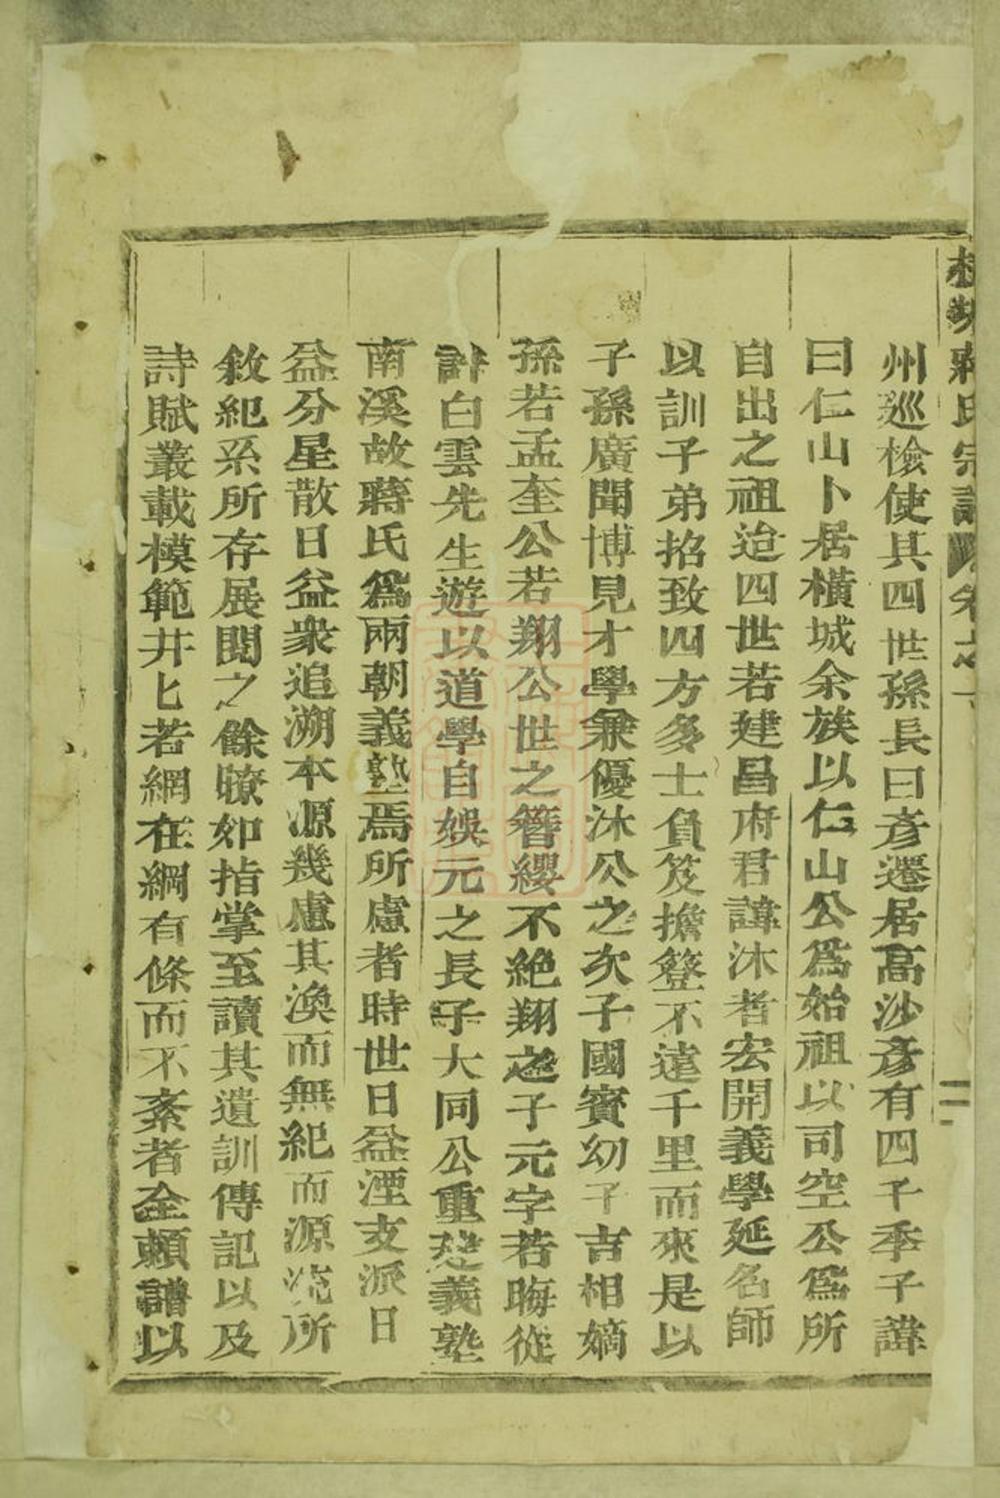 蔣氏宗譜 卷之一
州巡檢使其四世孫長曰彥遷居高沙彥有四子季子諱
曰仁山卜居橫城余族以仁山公爲始祖以司空公爲所
自出之祖迨四世若建昌府君諱沐者宏開義學延名師
以訓子弟招致四方多士負笈擔簦不遠千里而來是以
子孫廣聞博見才學兼優沐公之次子國賓幼子吉相嫡
孫若孟奎公若翔公世之簪纓不絕翔之子元字若晦從
許白雲先生遊以道學自娛元之長子大同公重建義塾
南溪故蔣氏爲兩朝義塾焉所慮者時世日益湮支派日
益分星散日益衆追溯本源幾慮其渙而無紀而源流所
敘紀系所存展閱之餘瞭如指掌至讀其遺訓傳記以及
詩賦叢載模範井匕若網在綱有條而不紊者全賴譜以